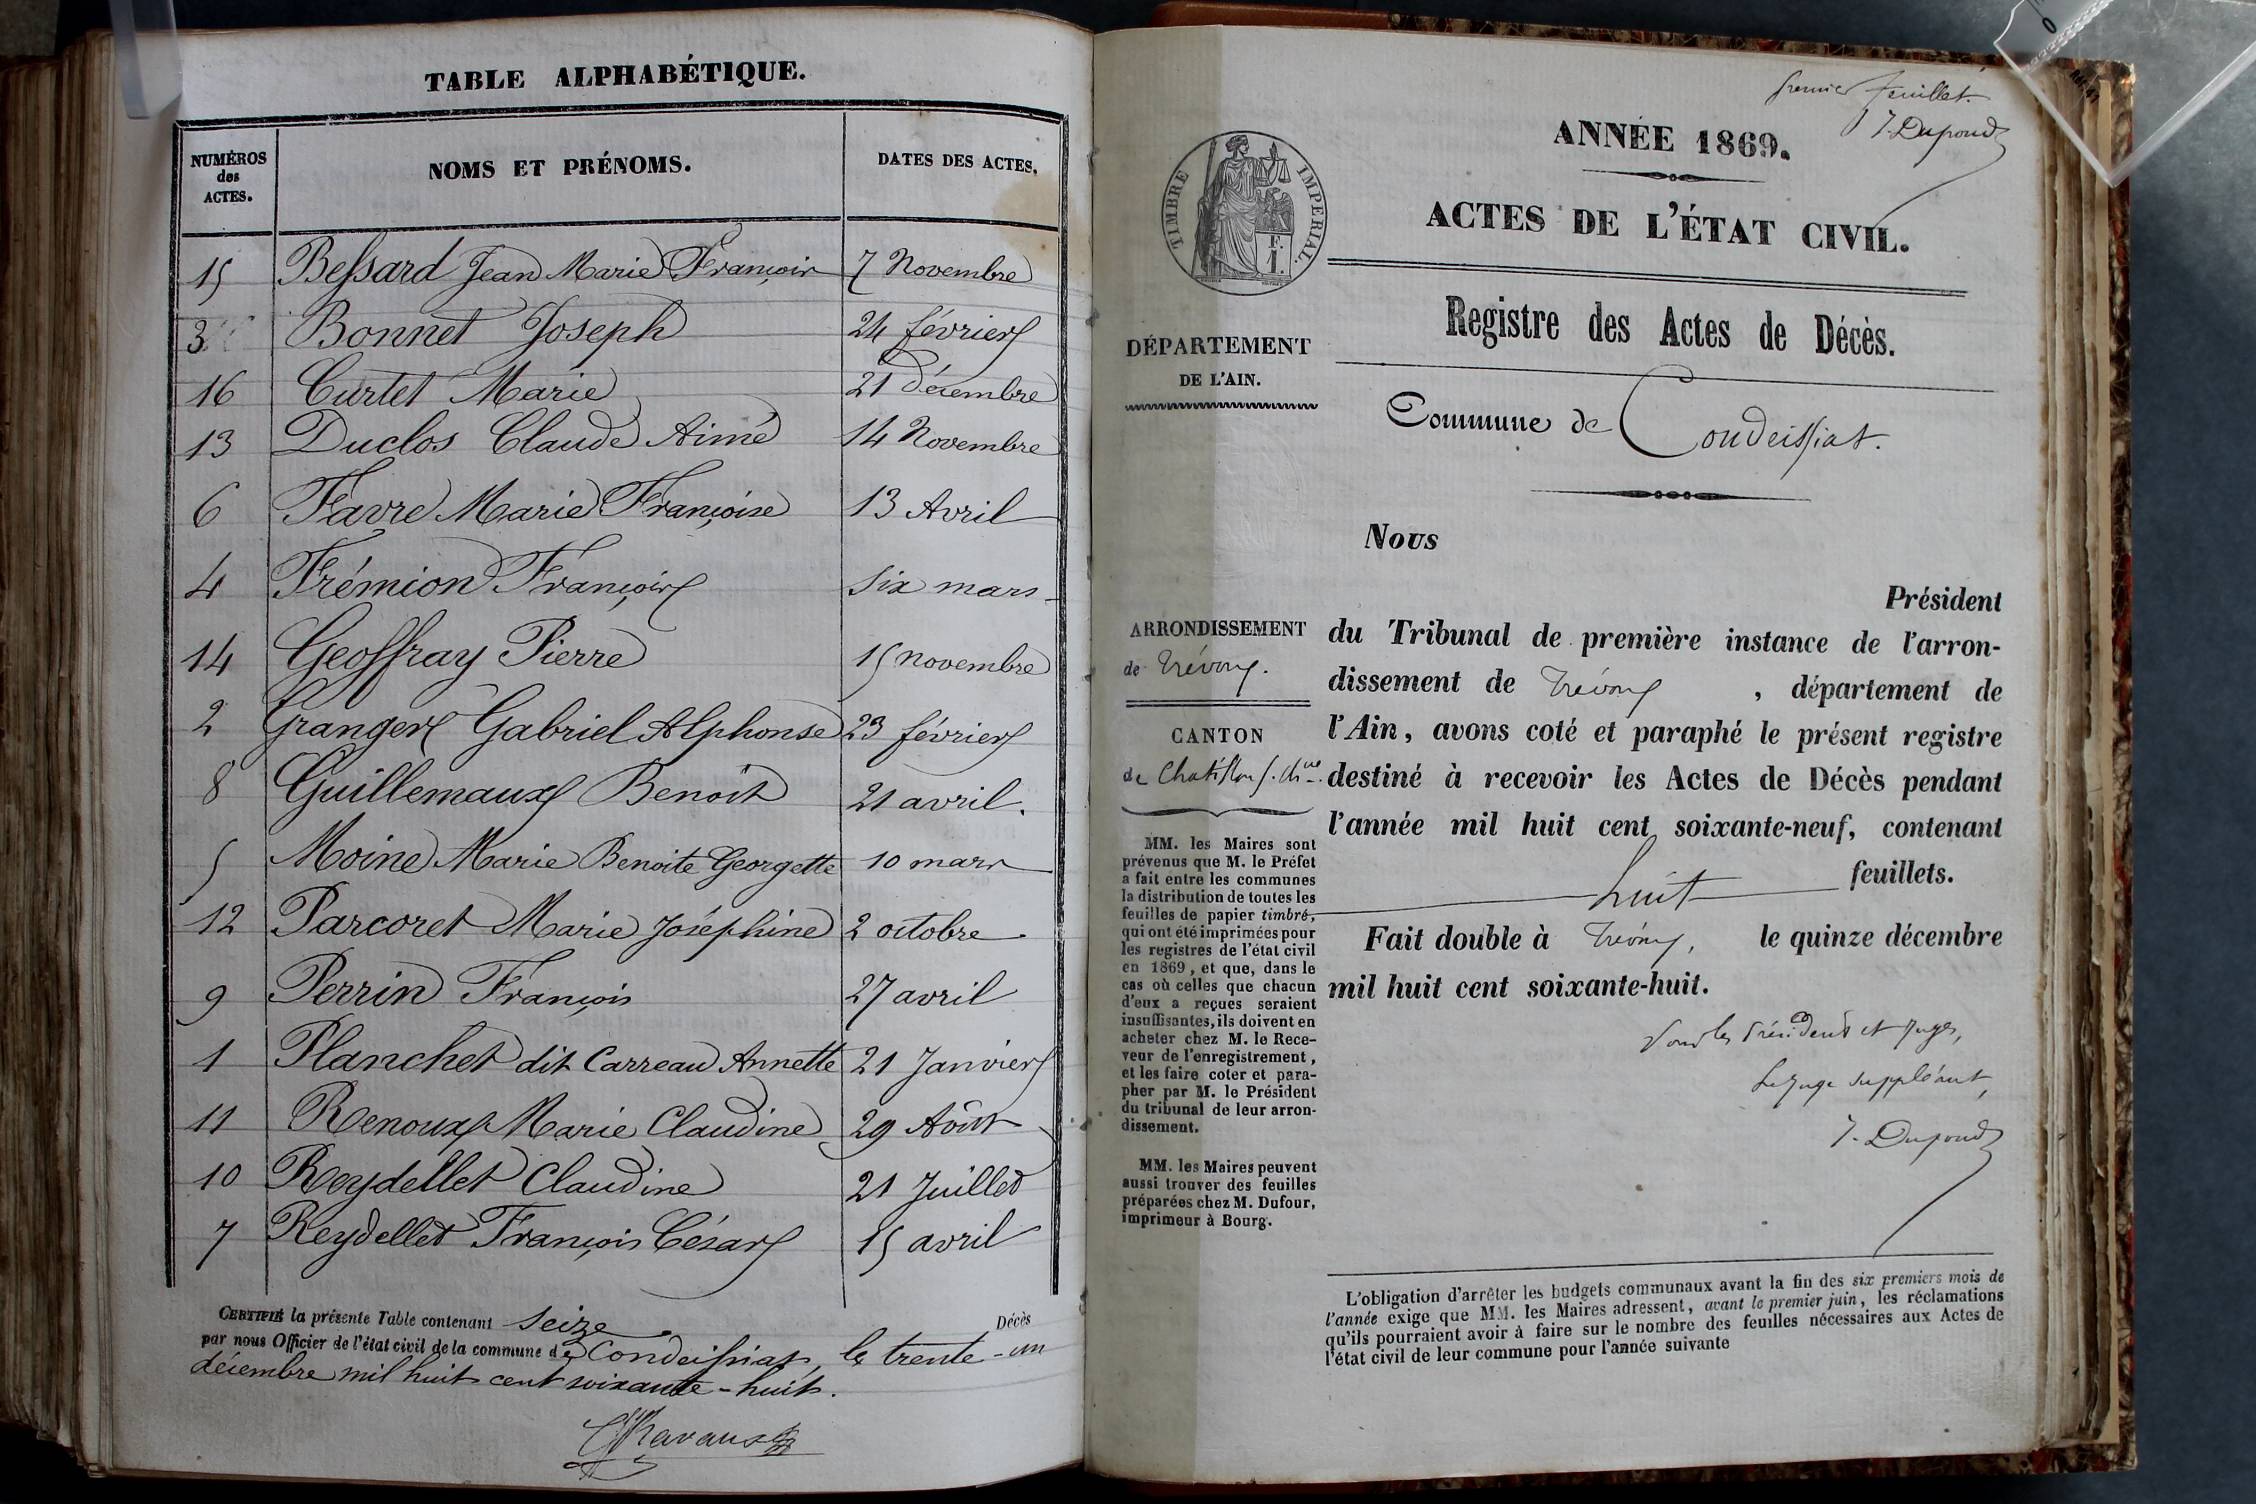 TABLE ALPHABÉTIQUE.
NUMÉROS des ACTES. NOMS ET PRÉNOMS. DATES DES ACTES.
15 Bessard Jean Marie François 7 Novembre
3 Bonnet Joseph 24 février
16 Curtet Marie 21 Décembre
13 Duclos Claude Aimé 14 Novembre
6 Favre Marie Françoise 13 Avril
4 Frémion François six mars
14 Geoffray Pierre 15 novembre
2 Granger Gabriel Alphonse 23 février
8 Guillemaux Benoit 21 avril.
5 Moine Marie Benoite Georgette 10 mars
12 Parcoret Marie Joséphine 2 octobre
9 Perrin François 27 avril
1 Planchet dit Carreau Annette 21 Janvier
11 Renoux Marie Claudine 29 Août
10 Reydellet Claudine 21 Juillet
7 Reydellet François César 15 avril
CERTIFIÉ la présente Table contenant seize Décès
par nous Officier de l'état civil de la commune de Condeissiat, le trente-un
décembre mil huit cent soixante-huit.
Ravaux
premier feuillet.
J. Dupond
ANNÉE 1869.
ACTES DE L'ÉTAT CIVIL.
TIMBRE IMPÉRIAL.
Registre des Actes de Décès.
DÉPARTEMENT
DE L'AIN.
Commune de Condeissiat.
ARRONDISSEMENT
de Trévoux.
CANTON
de Chatillon s. Ch.ne
MM. les Maires sont
prévenus que M. le Préfet
a fait entre les communes
la distribution de toutes les
feuilles de papier timbré,
qui ont été imprimées pour
les registres de l'état civil
en 1869, et que, dans le
cas où celles que chacun
d'eux a reçues seraient
insuffisantes, ils doivent en
acheter chez M. le Rece-
veur de l'enregistrement,
et les faire coter et para-
pher par M. le Président
du tribunal de leur arron-
dissement.
MM. les Maires peuvent
aussi trouver des feuilles
préparées chez M. Dufour,
imprimeur à Bourg.
Nous
Président
du Tribunal de première instance de l'arron-
dissement de Trévoux, département de
l'Ain, avons coté et paraphé le présent registre
destiné à recevoir les Actes de Décès pendant
l'année mil huit cent soixante-neuf, contenant
huit feuillets.
Fait double à Trévoux, le quinze décembre
mil huit cent soixante-huit.
Pour les Président et Juges,
Le Juge suppléant,
J. Dupond
L'obligation d'arrêter les budgets communaux avant la fin des six premiers mois de
l'année exige que MM. les Maires adressent, avant le premier juin, les réclamations
qu'ils pourraient avoir à faire sur le nombre des feuilles nécessaires aux Actes de
l'état civil de leur commune pour l'année suivante